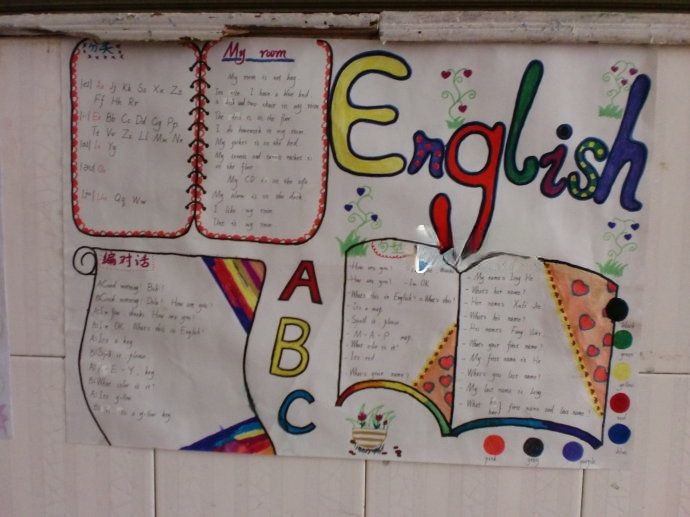 分类
[ei] Aa Jj Kk Ss Xx Zz
Ff Hh Rr
[i:] Ee Bb Cc Dd Gg Pp
Tt Vv Zz Ll Mm Nn
[ai] Ii Yy
[əu] Oo
Uu Qq Ww
My room
My room is not big.
I have a blue bed,
a desk and two chairs in my room.
is on the floor.
I do homework in my room.
is on the bed.
My and tennis rackets is
on the floor.
My CD is on the sofa.
My alarm is on the desk.
I like my room.
This is my room.
English
编对话
A: Good morning! Bob!
B: Good morning! Dale! How are you?
A: I'm fine, thanks. How are you?
B: I'm OK. What's this in English?
A: It's a key.
B: Spell it please.
A: K-E-Y, key.
B: What color is it?
A: It's yellow.
key
A
B
C
句型
- How are you?
- How are you? - I'm OK
- What's this in English? - What's this?
- It's a map
- Spell it please
- M-A-P map.
- What color is it?
- It's red
- What's your name?
- My name's Ling He
- What's her name?
- Her name's
- What's his name?
- His name's Fang
- What's your first name?
- My first name is He
- What's your last name?
- My last name is Ling
- What first name and last name?
black
green
yellow
red
blue
pink
grey
purple